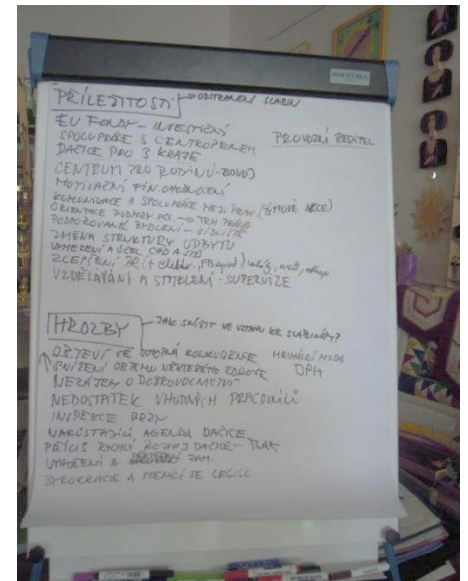 PŘÍLEŽITOSTI → ODSTRANĚNÍ SLABIN
EU FONDY - INVESTIČNÍ
SPOLUPRÁCE S CENTROPOLEM
PROVOZNÍ ŘEDITEL
DAČICE PRO 3 KRAJE
CENTRUM PRO RODINU - ROZVOJ
MOTIVAČNÍ FIN. OHODNOCENÍ
KOMUNIKACE A SPOLUPRÁCE MEZI PRAC. (TÝMOVÉ AKCE)
ORIENTACE PODPORY → TRH PRÁCE
PODPOROVANÉ BYDLENÍ - SÍDLIŠTĚ
ZMĚNA STRUKTURY ODBYTU
A
ZLEPŠENÍ PR (+ web, eshop
VZDĚLÁVÁNÍ A - SUPERVIZE
HROZBY JAK SNÍŽIT VE VZTAHU KE SLABINÁM?
OBJEVÍ SE KONKURENCE MINIMÁLNÍ MZDA
SNÍŽENÍ OBJEMU NĚKTERÉHO ZDROJE DPH
NEZÁJEM O DOBROVOLNICTVÍ
NEDOSTATEK VHODNÝCH PRACOVNÍKŮ
INSPEKCE BRZY
NARŮSTAJÍCÍ AGENDA DAČICE
PŘÍLIŠ RYCHLÝ ROZVOJ DAČICE - TLAK
VYHOŘENÍ A ZAM.
BYROKRACIE A MĚNÍCÍ SE LEGISL.